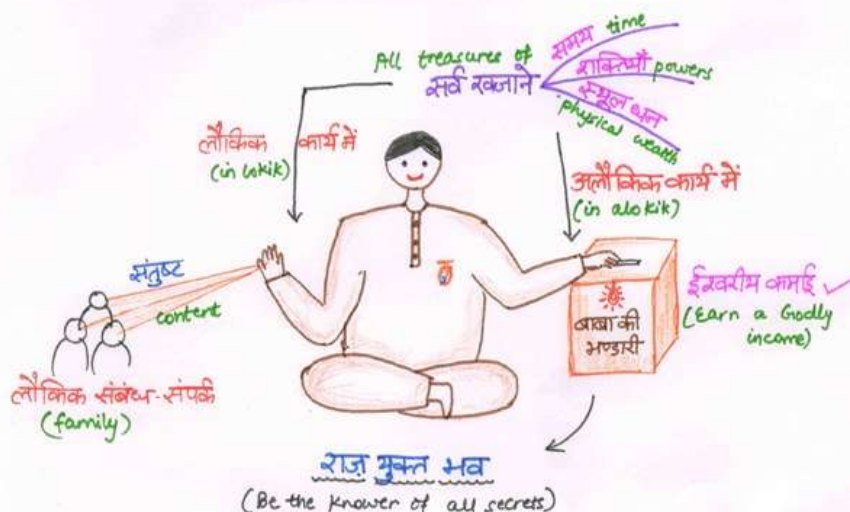 All treasures of
सर्व खज़ाने
समय time
शक्तियाँ powers
स्थूल धन
physical wealth
लौकिक कार्य में
(in lokik)
अलौकिक कार्य में
(in alokik)
संतुष्ट
content
लौकिक संबंध-संपर्क
(family)
बाबा की
भण्डारी
ईश्वरीय कमाई
(Earn a Godly
income)
राज़ युक्त भव
(Be the knower of all secrets)